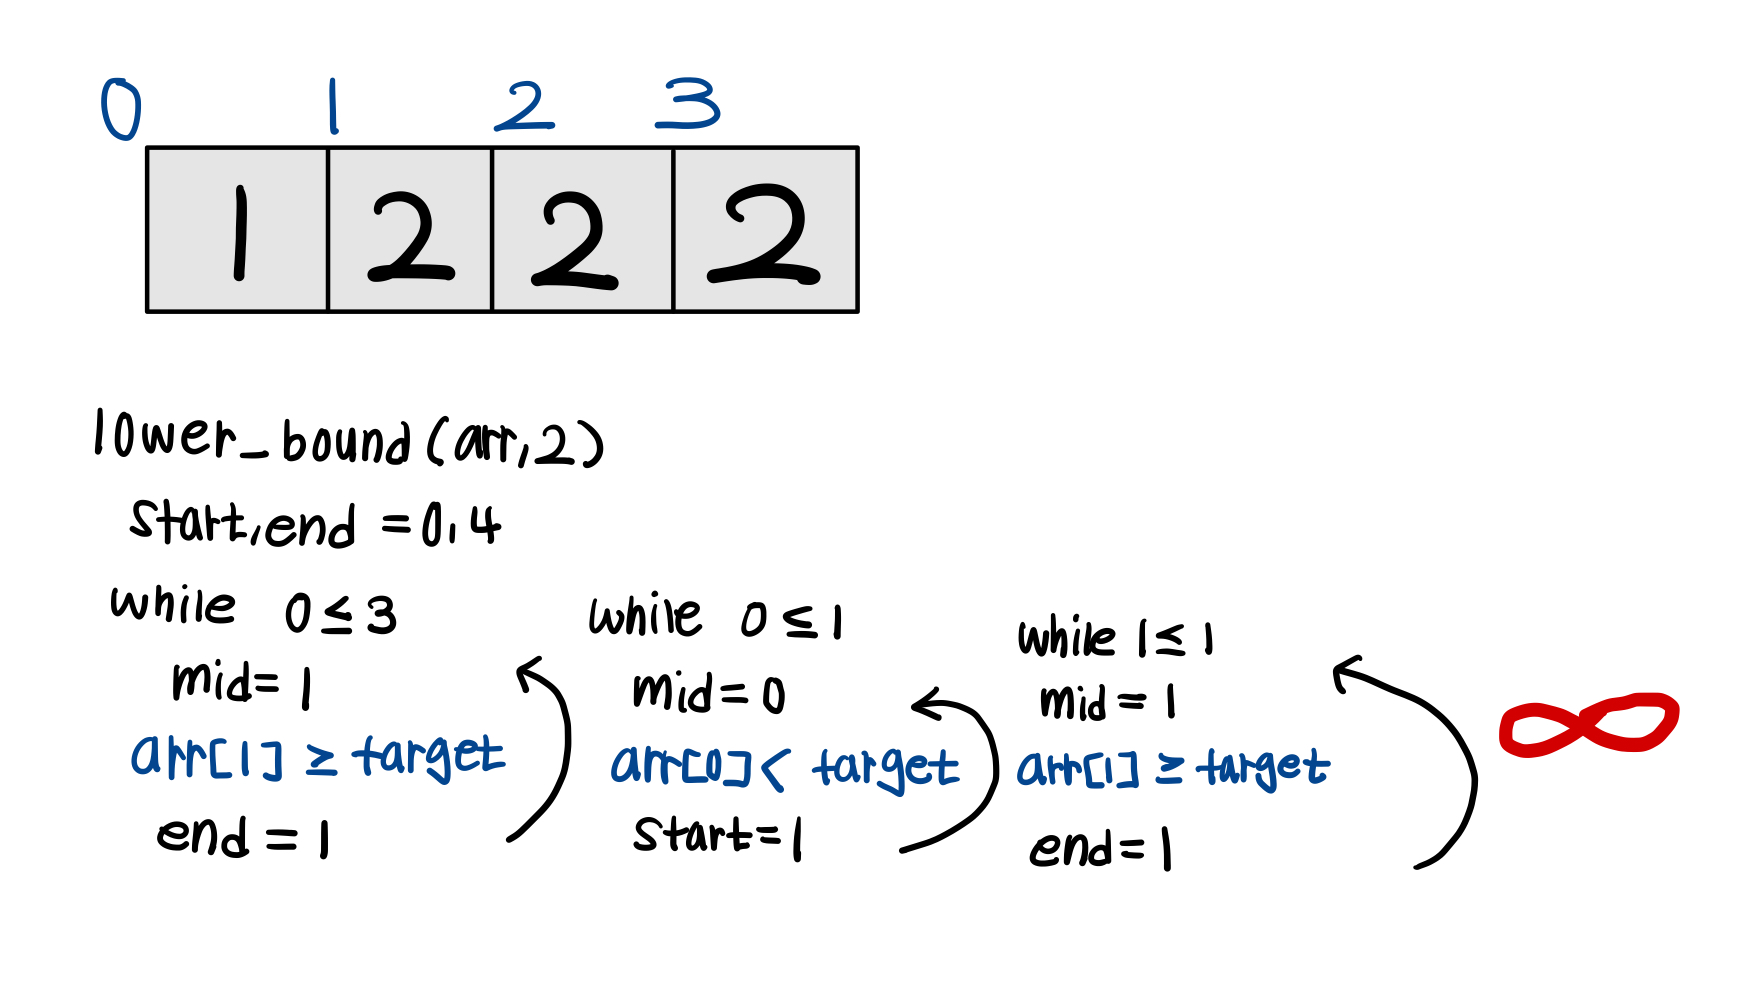 0 1 2 3
1 2 2 2
lower_bound(arr,2)
start,end = 0,4
while 0 ≤ 3
mid = 1
arr[1] ≥ target
end = 1
while 0 ≤ 1
mid = 0
arr[0] < target
start = 1
while 1 ≤ 1
mid = 1
arr[1] ≥ target
end = 1
∞